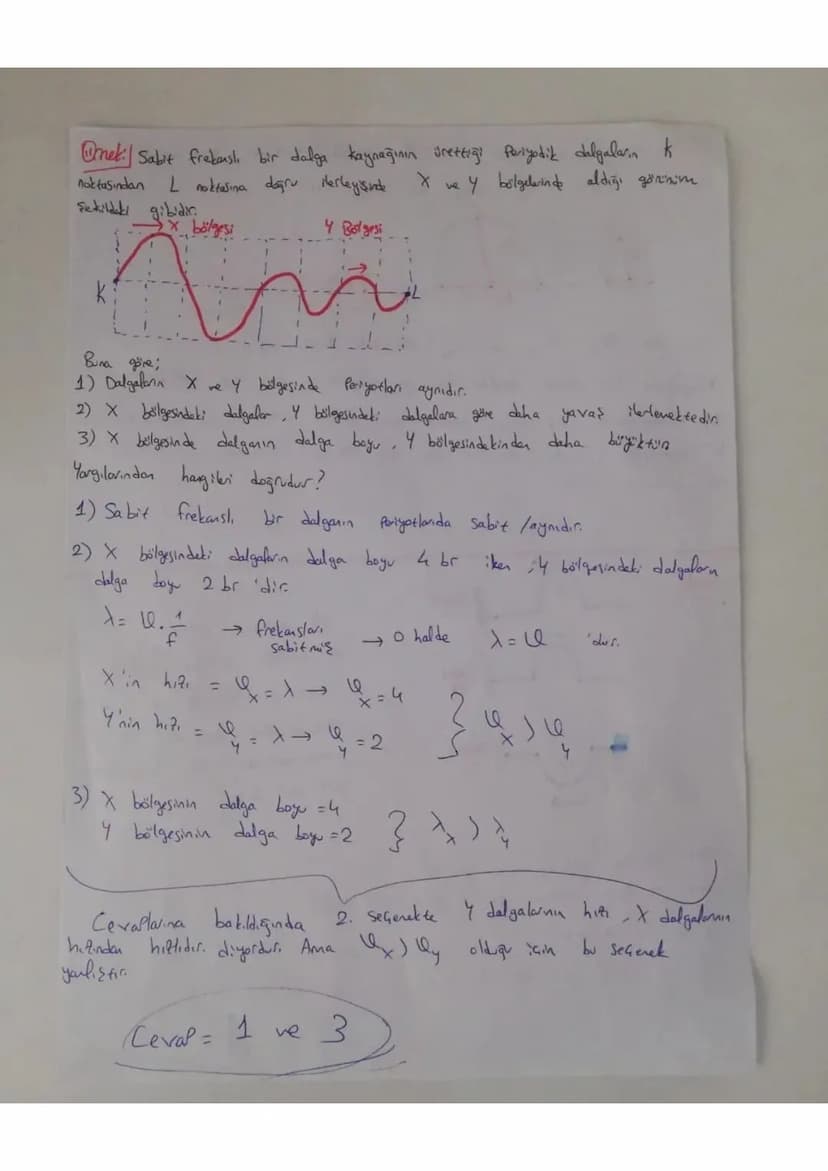 Örnek: Sabit frekanslı bir dalga kaynağının ürettiği Periyodik dalgaların K
noktasından L noktasına doğru ilerleyişinde X ve Y bölgelerinde aldığı görünüm
Şekildeki gibidir.
X bölgesi Y Bölgesi
K L
Buna göre;
1) Dalgaların X ve Y bölgesinde Periyotları aynıdır.
2) X bölgesindeki dalgalar, Y bölgesindeki dalgalara göre daha yavaş ilerlemektedir.
3) X bölgesinde dalganın dalga boyu, Y bölgesindekinden daha büyüktür.
Yargılarından hangileri doğrudur?
1) Sabit frekanslı bir dalganın Periyotlarıda sabit /aynıdır.
2) X bölgesindeki dalgaların dalga boyu 4 br iken, Y bölgesindeki dalgaların
dalga boyu 2 br 'dir.
λ = ϑ . 1/f → frekansları sabitmiş → O halde λ = ϑ 'dur.
X'in hızı = ϑx = λ → ϑx = 4
Y'nin hızı = ϑy = λ → ϑy = 2 } ϑx > ϑy
3) X bölgesinin dalga boyu = 4
Y bölgesinin dalga boyu = 2 } λx > λy
Cevaplarına bakıldığında 2. seçenekte Y dalgalarının hızı, X dalgalarının
hızından hızlıdır. diyordur. Ama ϑx > ϑy olduğu için bu seçenek
yanlıştır.
Cevap = 1 ve 3